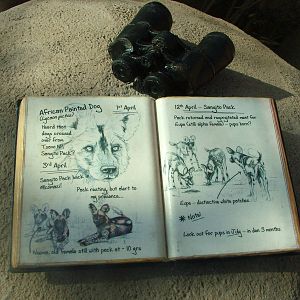 African Painted Dog
(Lycaon pictus)
1st April
Heard then
dogs crossed
over from
Tsome NP.
Sanyito Pack?
3rd April
Sanyito Pack back
Pack resting, but alert to
my presence...
old female still with pack at ~ 10 yrs
12th April - Sanyito Pack
Pack returned and regurgitated meat for
Eupe (still alpha female) - pups born?
Eupe - distinctive white patches
* Note!
Look out for pups in July - in den 3 months